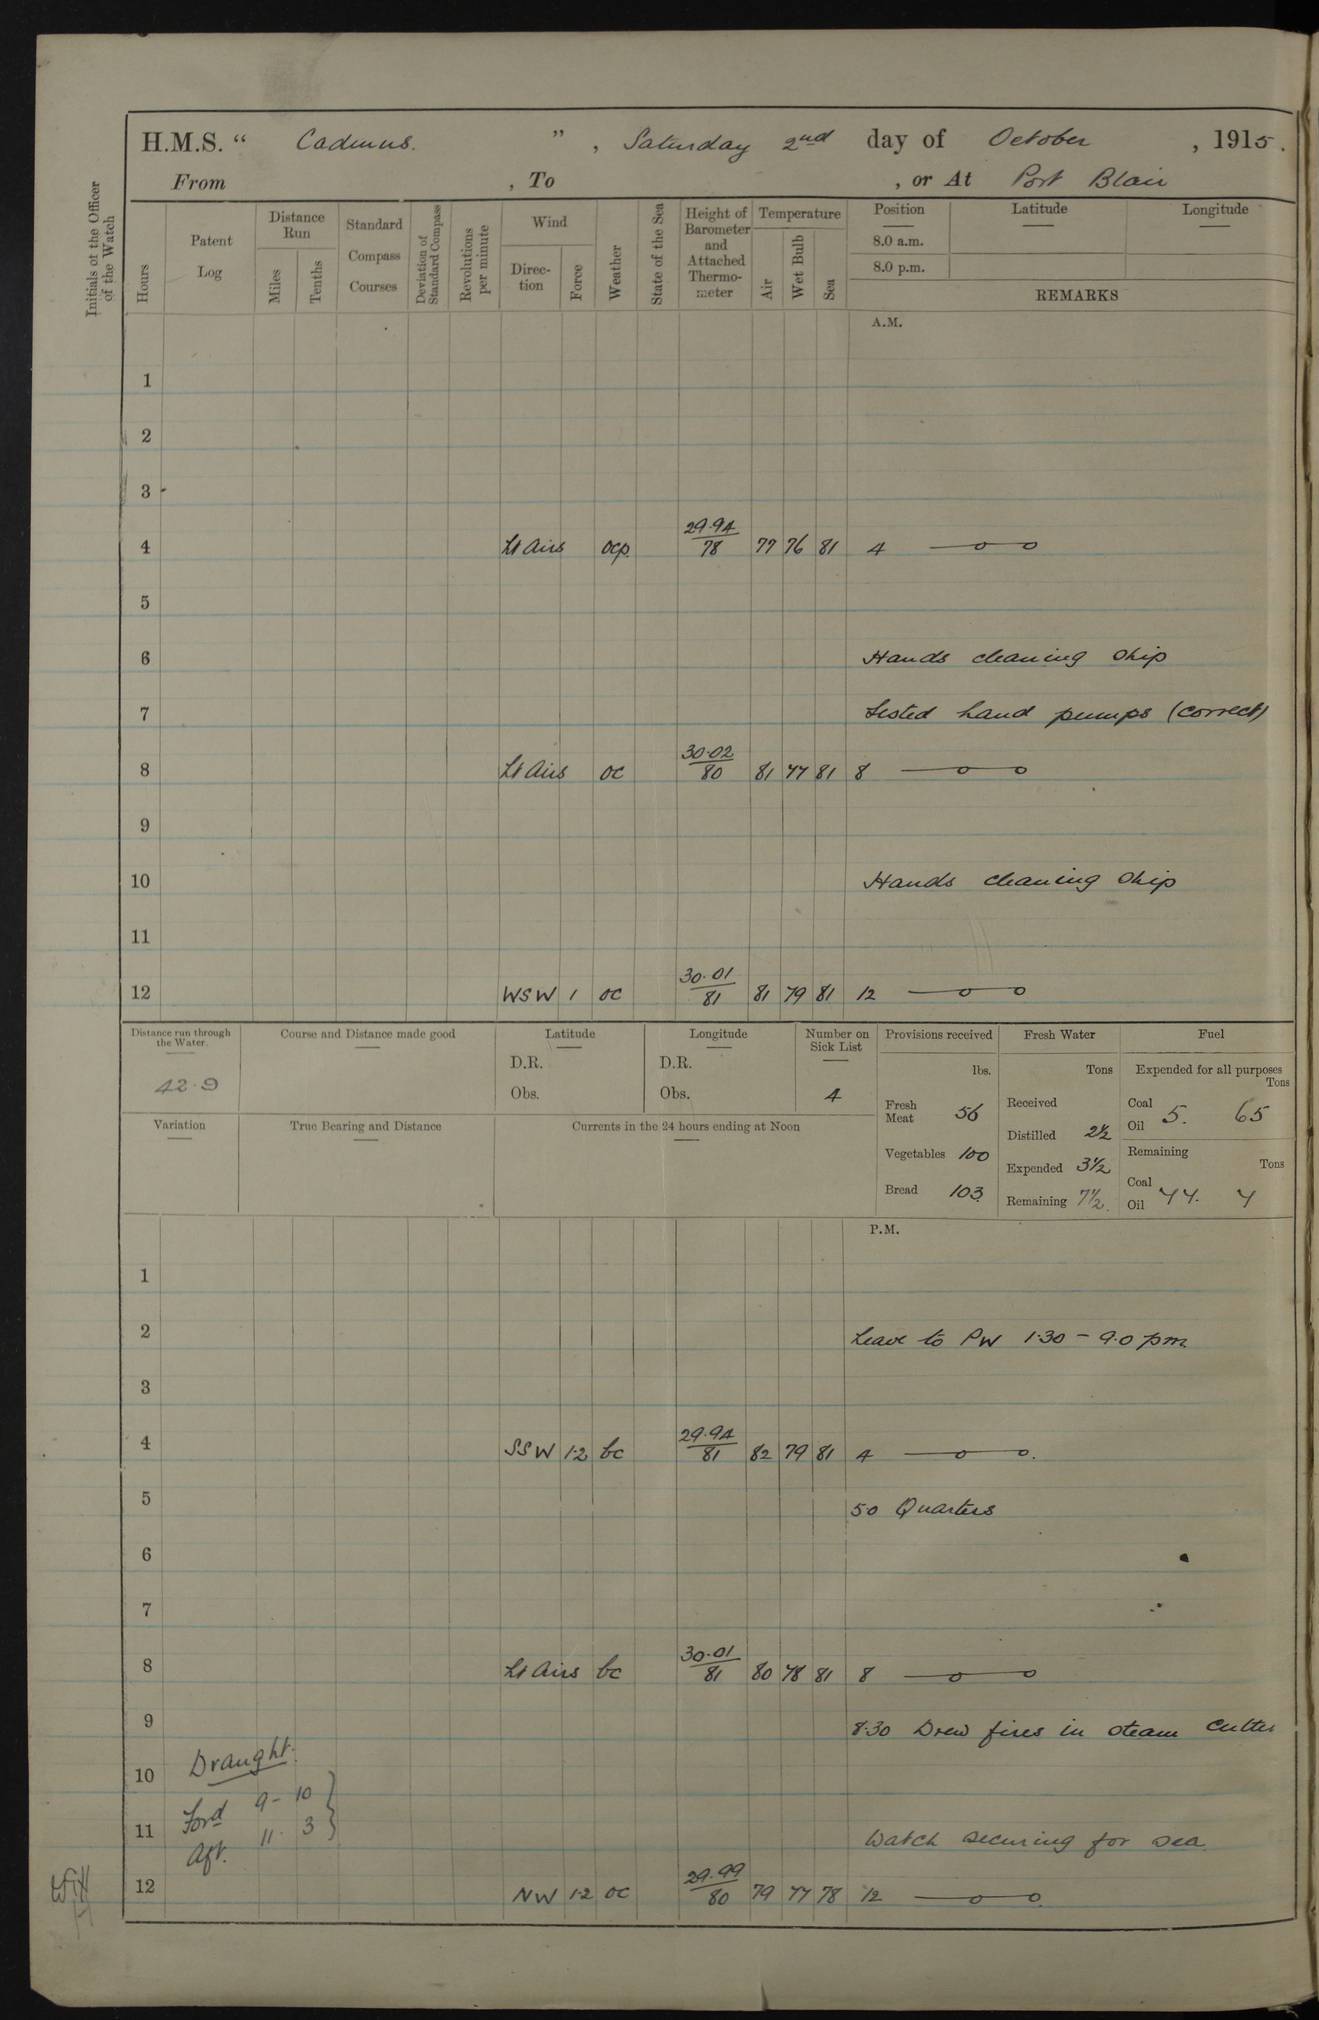 H.M.S. “ Cadmus. ” , Saturday 2nd day of October , 1915.
From , To , or At Port Blair
Initials of the Officer of the Watch
Hours
Patent Log
Distance Run
Miles
Tenths
Standard Compass Courses
Deviation of Standard Compass
Revolutions per minute
Wind
Direction
Force
Weather
State of the Sea
Height of Barometer and Attached Thermometer
Temperature
Air
Wet Bulb
Sea
Position Latitude Longitude
8.0 a.m.
8.0 p.m.
REMARKS
A.M.
1
2
3
4 Lt Airs ocp 29.94/78 77 76 81 4
5
6 Hands cleaning ship
7 Tested hand pumps (correct)
8 Lt Airs oc 30.02/80 81 77 81 8
9
10 Hands cleaning ship
11
12 WSW 1 oc 30.01/81 81 79 81 12
Distance run through the Water.
42.9
Course and Distance made good
Latitude
D.R.
Obs.
Longitude
D.R.
Obs.
Number on Sick List
4
Provisions received
lbs.
Fresh Meat 56
Vegetables 100
Bread 103
Fresh Water
Tons
Received
Distilled 2½
Expended 3½
Remaining 7½
Fuel
Expended for all purposes
Tons
Coal
Oil 5. 65
Remaining
Tons
Coal
Oil 77. 7
Variation
True Bearing and Distance
Currents in the 24 hours ending at Noon
P.M.
1
2 Leave to PW 1.30 - 9.0 pm
3
4 SSW 1.2 bc 29.94/81 82 79 81 4
5 5.0 Quarters
6
7
8 Lt Airs bc 30.01/81 80 78 81 8
9 8.30 Drew fires in steam cutter
10 Draught.
Ford 9 - 10
11 Watch securing for sea
Aft. 11. 3
12 NW 1.2 oc 29.99/80 79 77 78 12